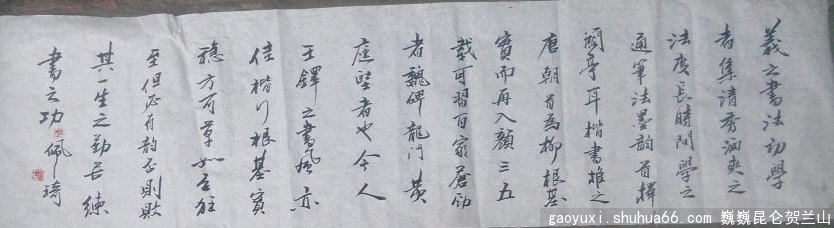 羲之書法初學
者集清秀涵爽之
法度長時間學之
通筆法墨韵首擇
蘭亭耳楷書推之
唐朝首為柳根基
實而再入顏三五
載可習百家蒼勁
者魏碑龍门黄
庭堅者也今人
王鐸之書風亦
佳楷行根基實
穩方可草如不狂
至但必有韵否則敗
其一生之勤苦練
書之功佩琦
gaoyuxi.shuhua66.com 巍巍昆仑贺兰山